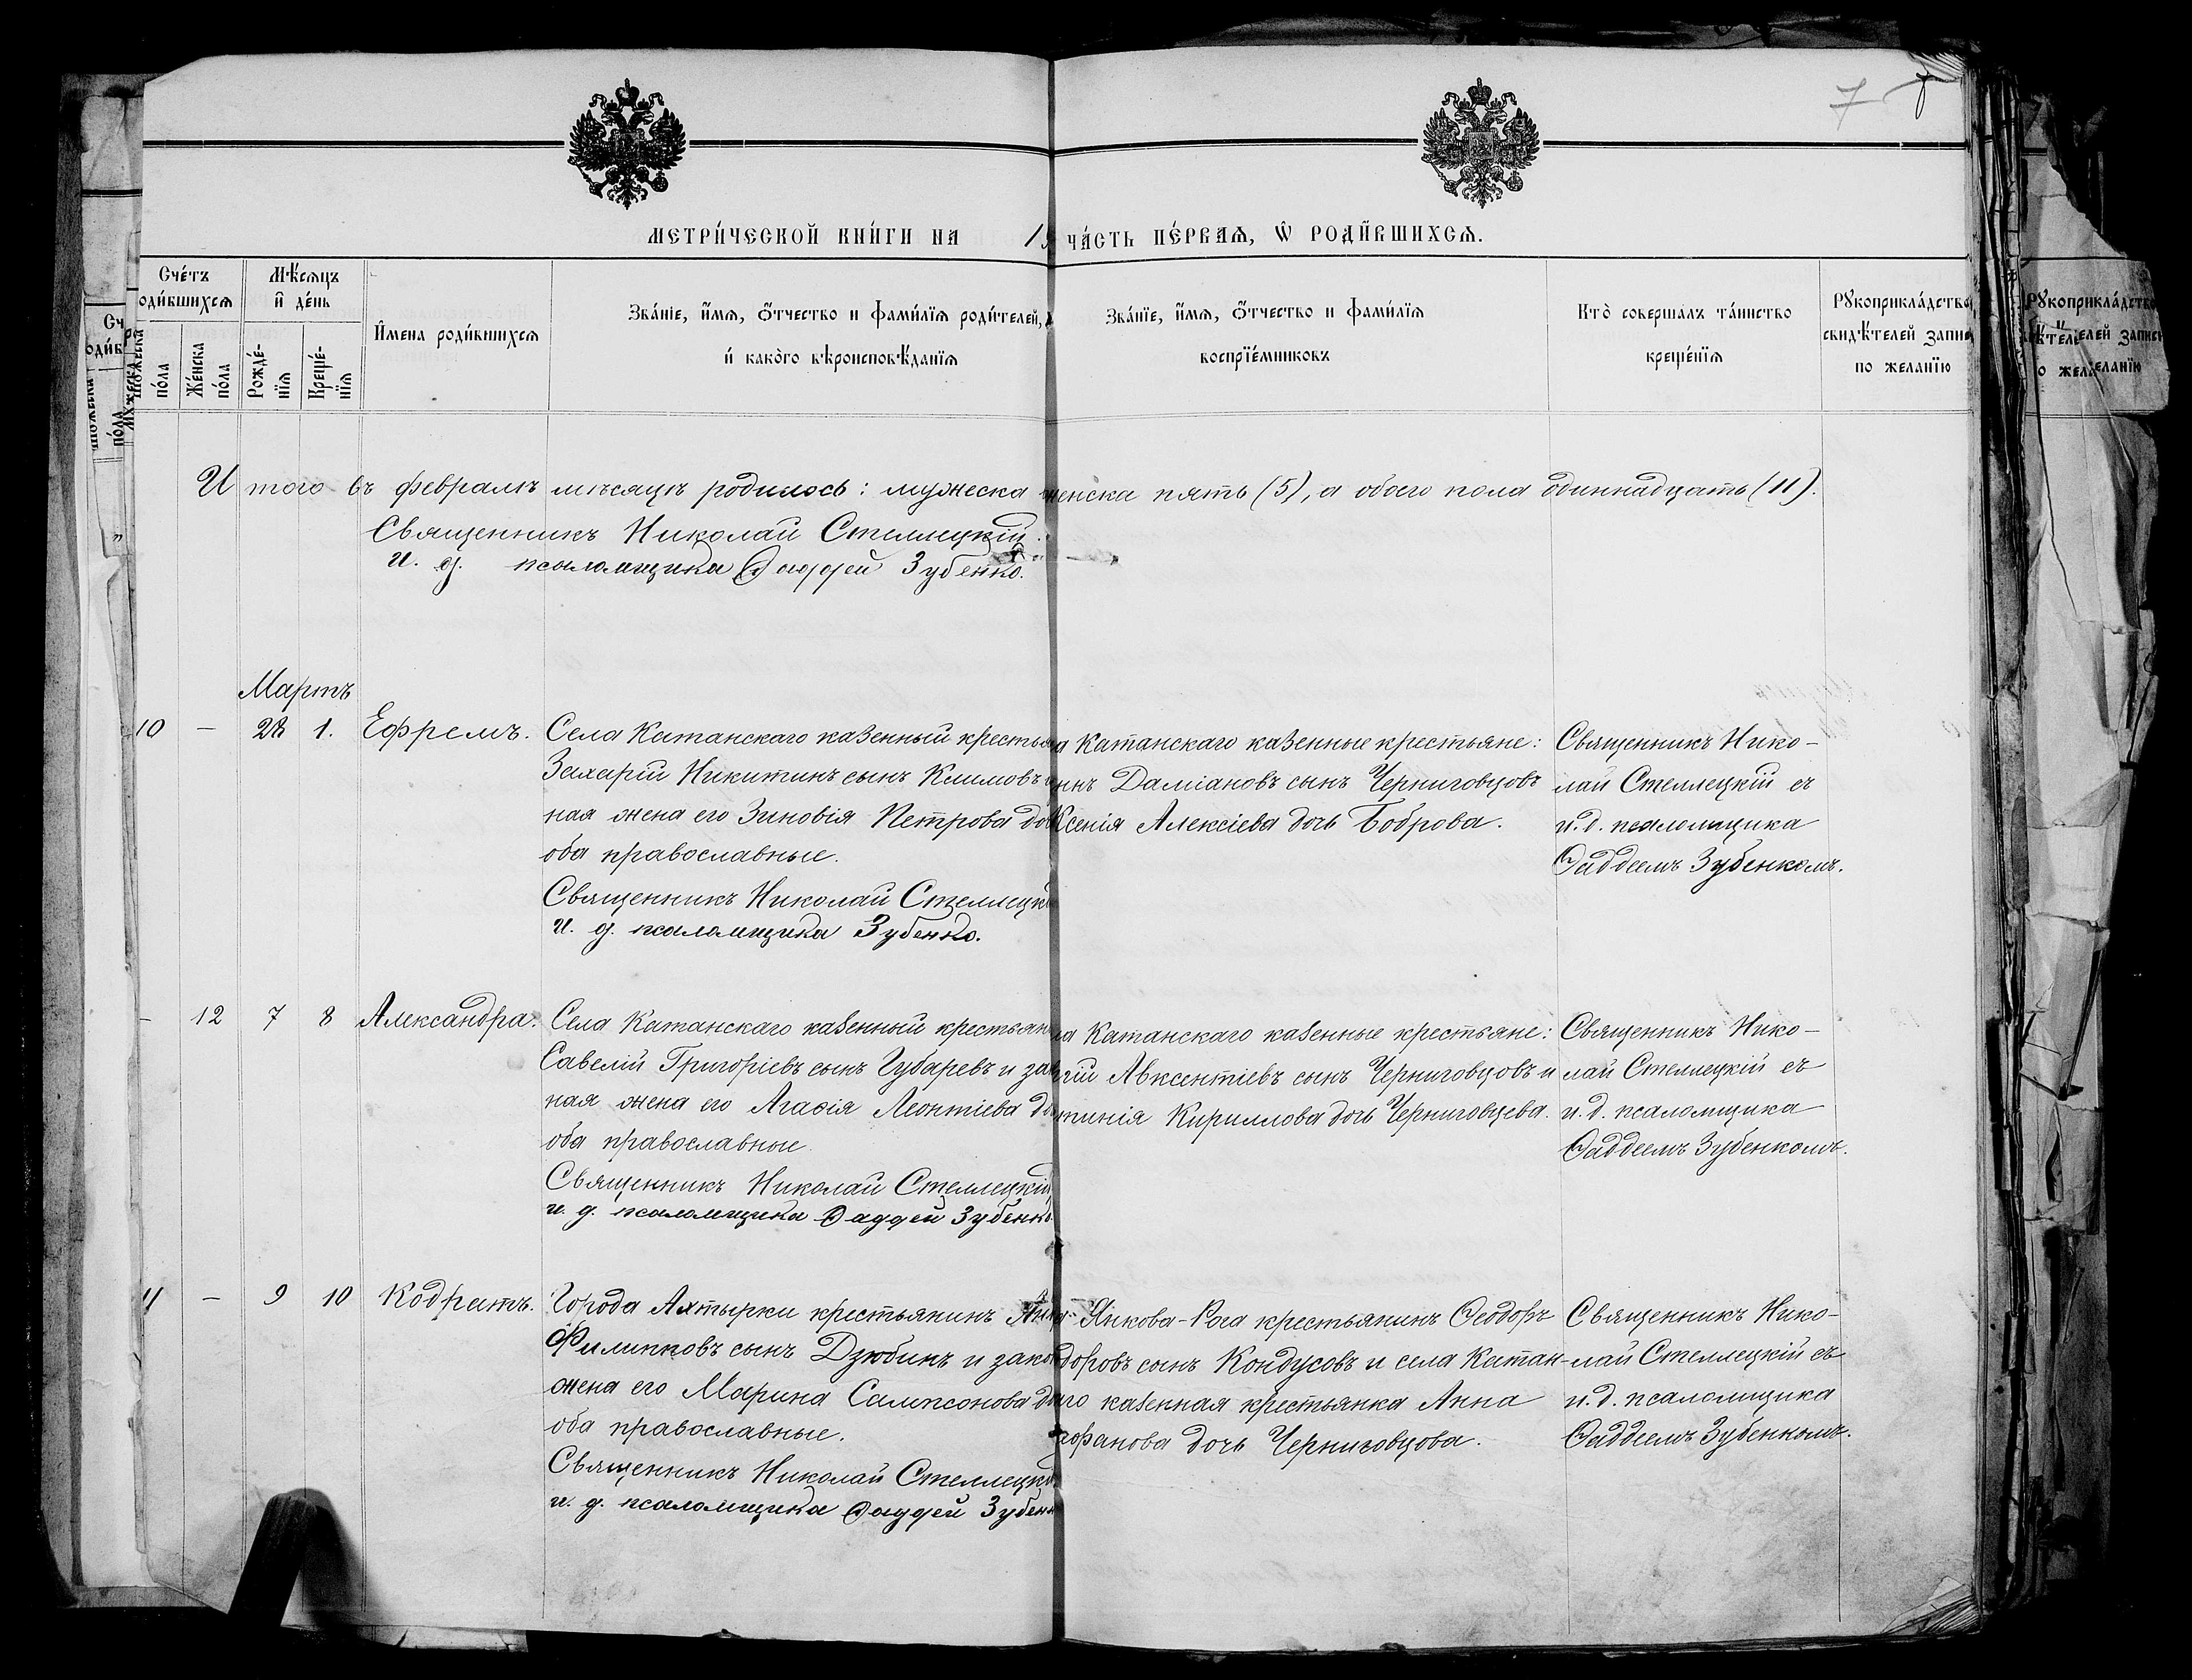 7
МЕТРИ́ЧЕСКОЙ КНИ́ГИ НА 1
ЧА́СТЬ ПЕ́РВАѦ, Ѡ҆ РОДИ́ВШИХСѦ.
Сче́тъ
оди́вшихсѧ
Мѣ́сѧцъ
и҆ де́нь
И҆мена роди́вшихсѧ
Зва́нїе, и҆́мѧ, ѻ҆́тчество и фами́лїѧ роди́телей,
и҆ како́го вѣроисповѣ́данїѧ
Зва́нїе, и҆́мѧ, ѻ҆́тчество и фами́лїѧ
воспрїе́мниковъ
Кто̀ соверша́лъ та́инство
креще́нїѧ
Рꙋкоприкла́дство
свидѣ́телей запи
по жела́нїю
по́ла
Же́нска
по́ла
Рожде́-
нїѧ
Креще́-
нїѧ
Итого въ февралѣ мѣсяцѣ родилось: мужеска женска пять (5), а обоего пола одиннадцать (11).
Священникъ Николай Стеллецкій.
и. д. псаломщика Ѳаддей Зубенко.
Мартъ
10 — 28 1. Ефремъ.
Села Катанскаго казенный крестья
Захарій Никитинъ сынъ Климовъ
ная жена его Зиновія Петрова до
оба православные.
Священникъ Николай Стеллецкі
и. д. псаломщика Зубенко.
а Катанскаго казенные крестьяне:
инъ Даміановъ сынъ Черниговцовъ
Ксенія Алексіева дочь Боброва.
Священникъ Нико-
лай Стеллецкій съ
и. д. псаломщика
Ѳаддеемъ Зубенкомъ.
— 12 7 8 Александра.
Села Катанскаго казенный крестьян
Савелій Григоріевъ сынъ Губаревъ и зак
ная жена его Агаѳія Леонтіева до
оба православные
Священникъ Николай Стеллецкій
и. д. псаломщика Ѳаддей Зубенко
ла Катанскаго казенные крестьяне:
гій Авксентіевъ сынъ Черниговцовъ и
тинія Кириллова дочь Черниговцева.
Священникъ Нико-
лай Стеллецкій съ
и. д. псаломщика
Ѳаддеемъ Зубенкомъ.
11 — 9 10 Кодратъ.
Города Ахтырки крестьянинъ
Филипповъ сынъ Дзюбинъ и закон
жена его Марина Сампсонова до
оба православные.
Священникъ Николай Стеллецкі
и. д. псаломщика Ѳаддей Зубенк
а Янкова-Рога крестьянинъ Ѳеодоръ
доровъ сынъ Кондусовъ и села Катан-
аго казенная крестьянка Анна
офанова дочь Черниговцова.
Священникъ Нико-
лай Стеллецкій съ
и. д. псаломщика
Ѳаддеемъ Зубенкомъ.